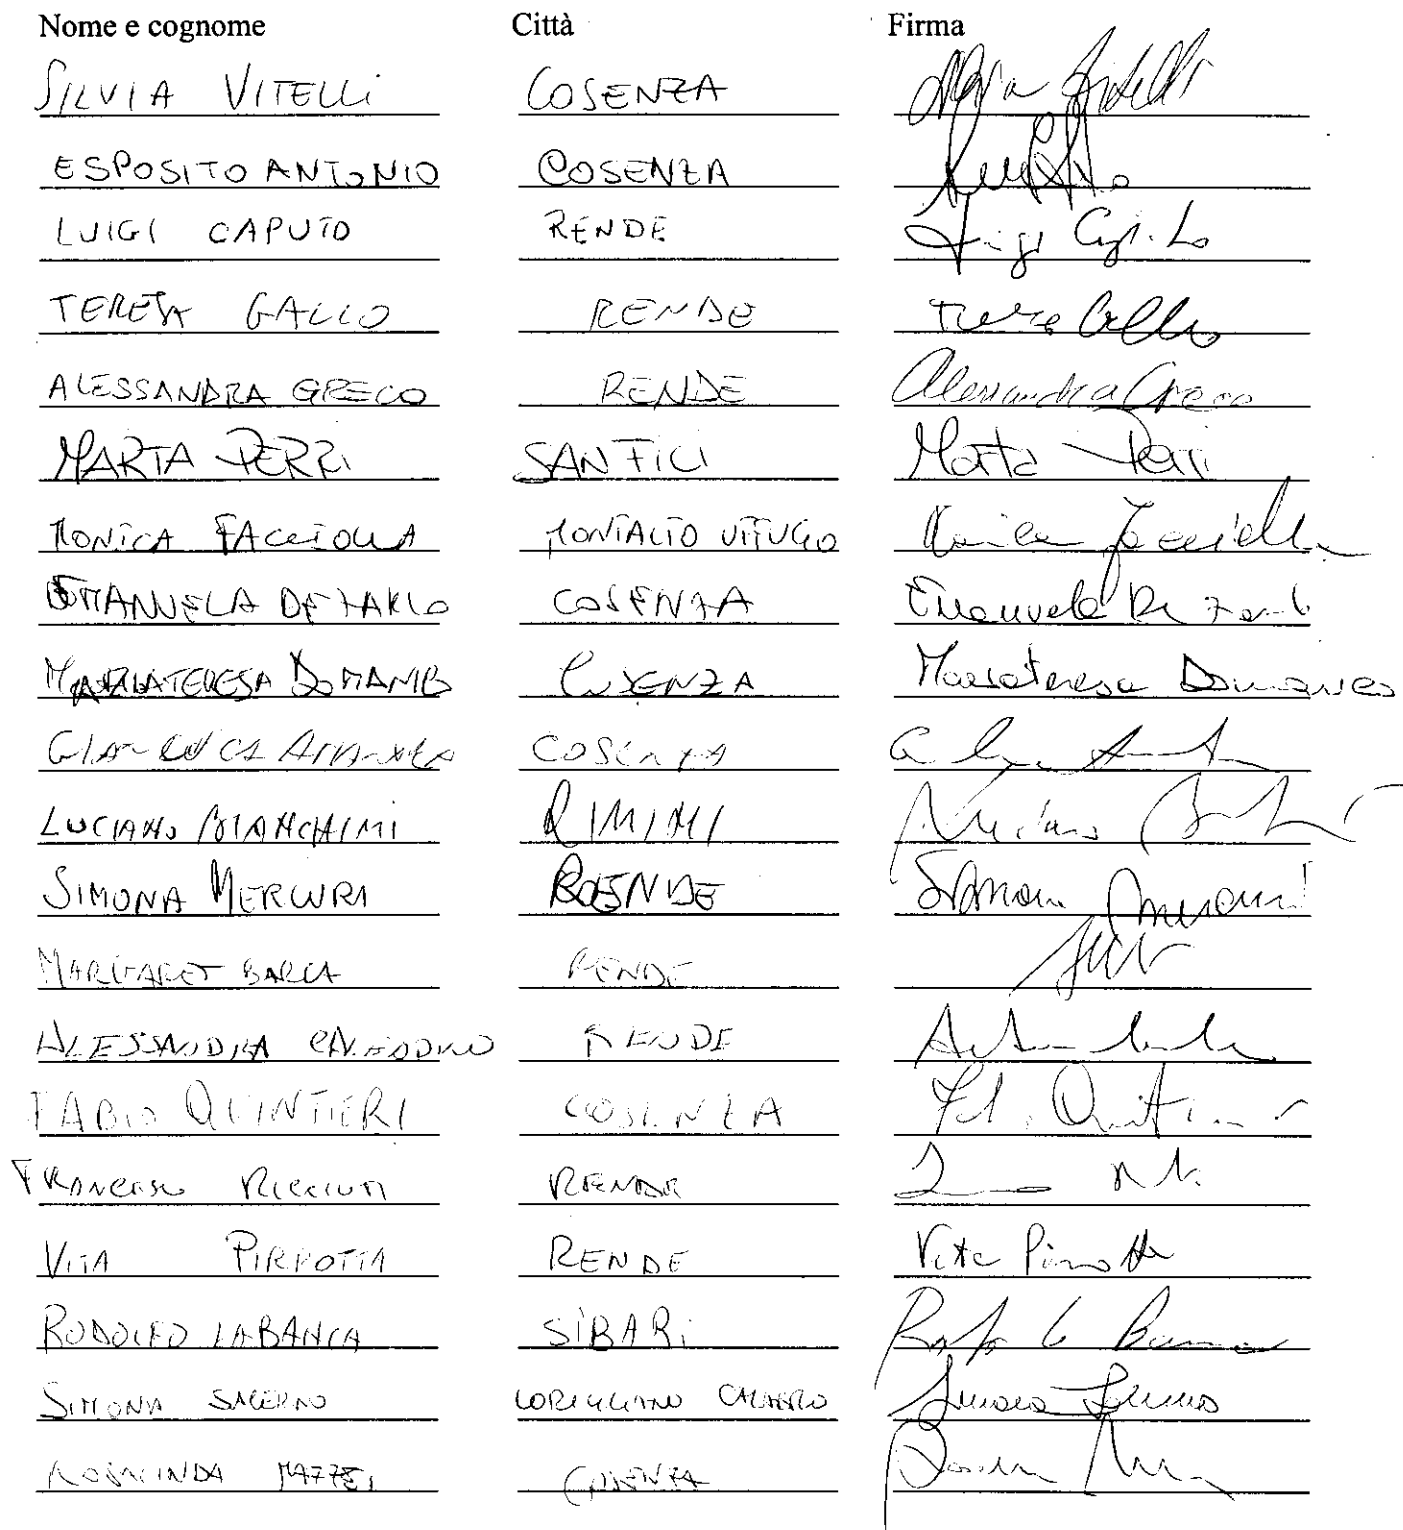 Nome e cognome Città Firma
SILVIA VITELLI COSENZA Silvia Vitelli
ESPOSITO ANTONIO COSENZA
LUIGI CAPUTO RENDE Luigi Caputo
TERESA GALLO RENDE Teresa Gallo
ALESSANDRA GRECO RENDE Alessandra Greco
MARTA PERRI SAN FILI Marta Perri
MONICA FACCIOLLA MONTALTO UFFUGO Monica Facciolla
EMANUELA DE COSENZA Emanuela De
MARIATERESA DOMANICO COSENZA Mariateresa Domanico
GIANLUCA COSENZA
LUCIANO BIANCHINI RIMINI Luciano
SIMONA MERCURI RENDE Simona Mercuri
MARGARET BARCA RENDE
ALESSANDRA RENDE
FABIO QUINTIERI COSENZA Quintieri
FRANCESCO RICCIUTI RENDE
VITA PIRROTTA RENDE Vita Pirrotta
RODOLFO LABANCA SIBARI
SIMONA SALERNO CORIGLIANO CALABRO Simona Salerno
ROSALINDA MAZZEI COSENZA